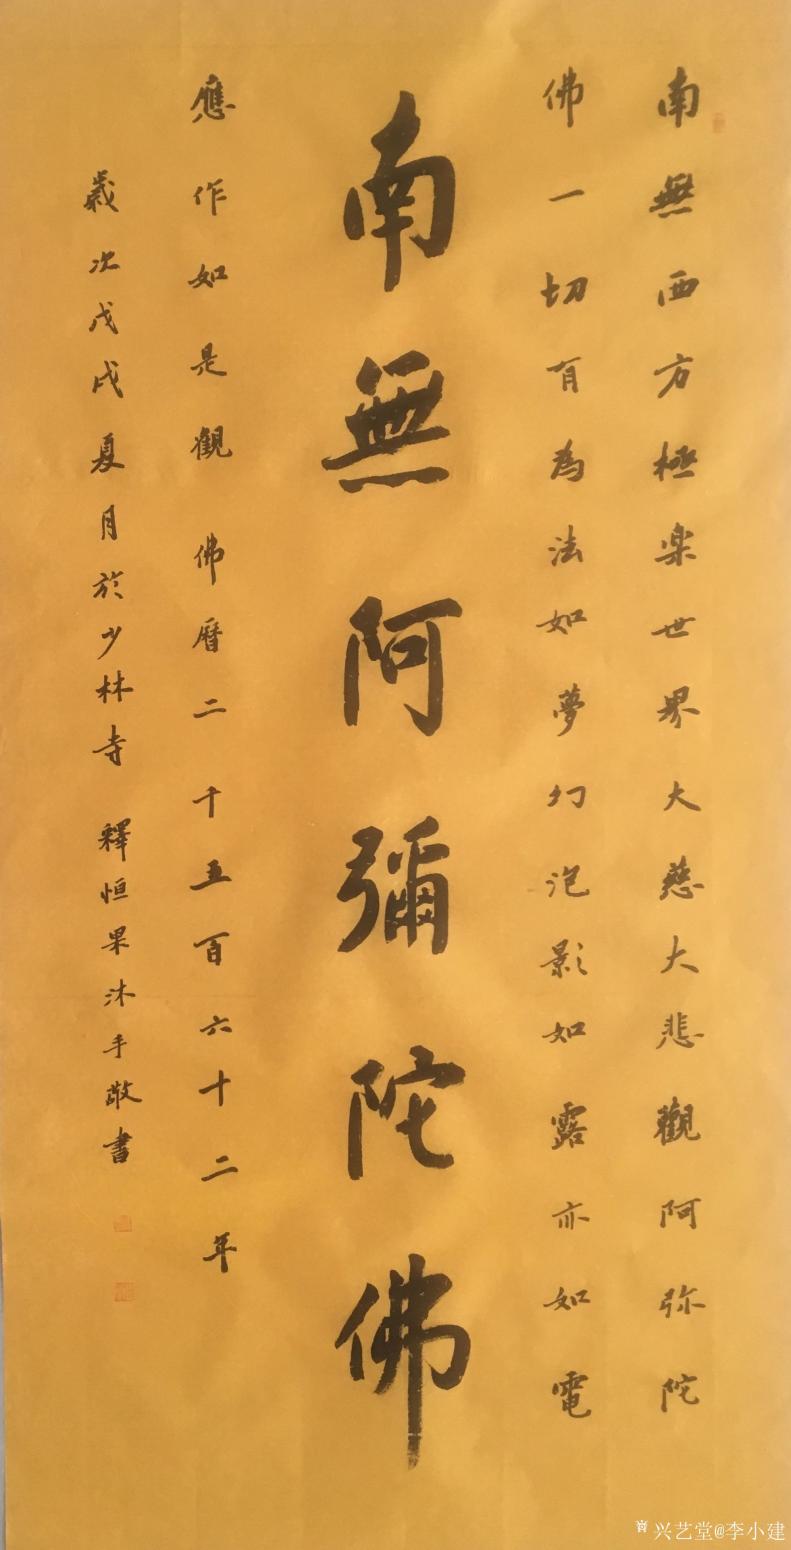 南無西方極楽世界大慈大悲觀阿弥陀
佛一切有為法如夢幻泡影如露亦如電
南無阿彌陀佛
應作如是觀 佛曆二千五百六十二年
歲次戊戌夏月於少林寺 釋恒果沐手敬書
兴艺堂@李小建